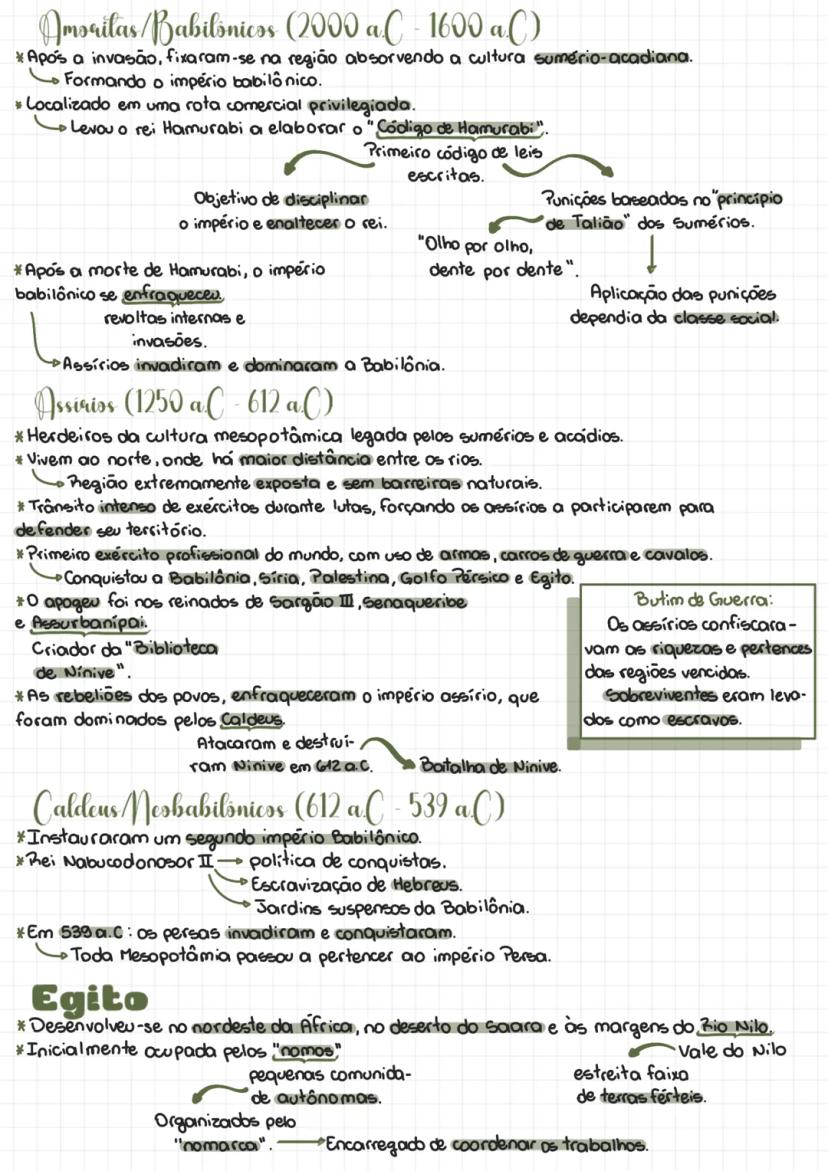 Amoritas/Babilônicos (2000 a.C - 1600 a.C)
*Após a invasão, fixaram-se na região absorvendo a cultura sumério-acadiana.
Formando o império babilônico.
*Localizado em uma rota comercial privilegiada.
Levou o rei Hamurabi a elaborar o "Código de Hamurabi".
Primeiro código de leis
escritas.
Objetivo de disciplinar
o império e enaltecer o rei.
Punições baseadas no "princípio
de Talião" dos Sumérios.
"Olho por olho,
dente por dente".
Aplicação das punições
dependia da classe social.
*Após a morte de Hamurabi, o império
babilônico se enfraqueceu.
revoltas internas e
invasões.
Assírios invadiram e dominaram a Babilônia.
Assírios (1250 a.C - 612 a.C)
*Herdeiros da cultura mesopotâmica legada pelos sumérios e acádios.
*Vivem ao norte, onde há maior distância entre os rios.
Região extremamente exposta e sem barreiras naturais.
*Trânsito intenso de exércitos durante lutas, forçando os assírios a participarem para
defender seu território.
*Primeiro exército profissional do mundo, com uso de armas, carros de guerra e cavalos.
Conquistou a Babilônia, Síria, Palestina, Golfo Pérsico e Egito.
*O apogeu foi nos reinados de Sargão III, Senaqueribe
e Assurbanípai.
Criador da "Biblioteca
de Nínive".
*As rebeliões dos povos, enfraqueceram o império assírio, que
foram dominados pelos Caldeus.
Atacaram e destruí-
ram Ninive em 612 a.C.
Batalha de Ninive.
Butim de Guerra:
Os assírios confiscara-
vam as riquezas e pertences
das regiões vencidas.
Sobreviventes eram leva-
dos como escravos.
Caldeus/Neobabilônicos (612 a.C - 539 a.C)
*Instauraram um segundo império Babilônico.
*Rei Nabucodonosor II política de conquistas.
Escravização de Hebreus.
Jardins suspensos da Babilônia.
*Em 539 a.C: os persas invadiram e conquistaram.
Toda Mesopotâmia passou a pertencer ao império Persa.
Egito
*Desenvolveu-se no nordeste da África, no deserto do Saara e às margens do Rio Nilo.
*Inicialmente ocupada pelos "nomos"
pequenas comunida-
de autônomas.
Organizados pelo
"nomarca". Encarregado de coordenar os trabalhos.
Vale do Nilo
estreita faixa
de terras férteis.